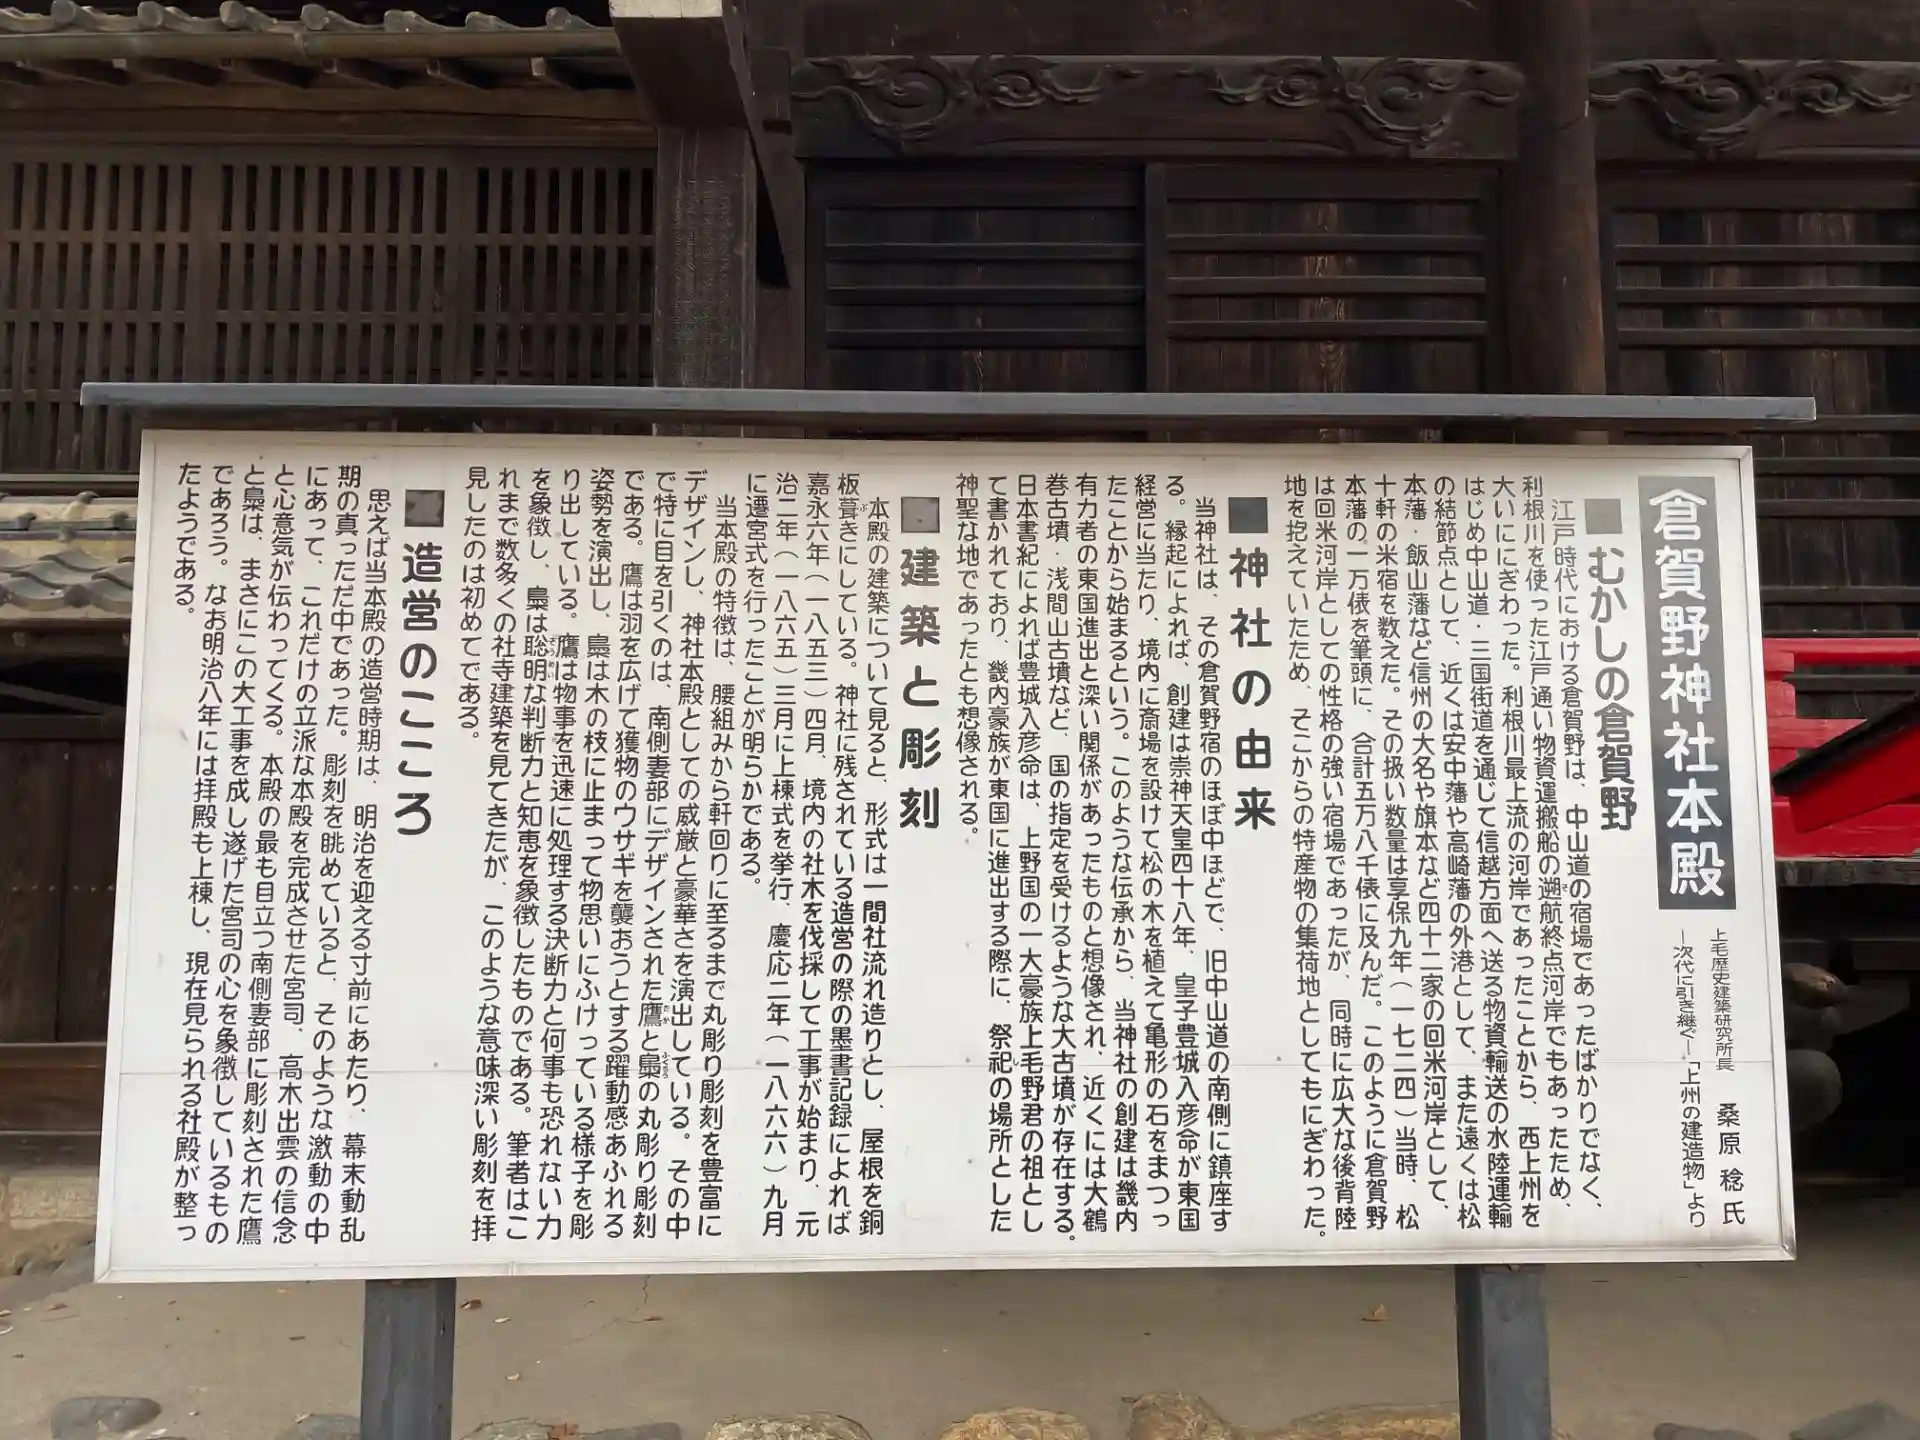 倉賀野神社本殿
上毛歴史建築研究所長 桑原 稔 氏
―次代に引き継ぐ―「上州の建造物」より
■むかしの倉賀野
江戸時代における倉賀野は、中山道の宿場であったばかりでなく、
利根川を使った江戸通い物資運搬船の遡航終点河岸でもあったため、
大いににぎわった。利根川最上流の河岸であったことから、西上州を
はじめ中山道・三国街道を通じて信越方面へ送る物資輸送の水陸運輸
の結節点として、近くは安中藩や高崎藩の外港として、また遠くは松
本藩・飯山藩など信州の大名や旗本など四十二家の回米河岸として、
十軒の米宿を数えた。その扱い数量は享保九年(一七二四)当時、松
本藩の一万俵を筆頭に、合計五万八千俵に及んだ。このように倉賀野
は回米河岸としての性格の強い宿場であったが、同時に広大な後背陸
地を抱えていたため、そこからの特産物の集荷地としてもにぎわった。
■神社の由来
当神社は、その倉賀野宿のほぼ中ほどで、旧中山道の南側に鎮座す
る。縁起によれば、創建は崇神天皇四十八年、皇子豊城入彦命が東国
経営に当たり、境内に斎場を設けて松の木を植えて亀形の石をまつっ
たことから始まるという。このような伝承から、当神社の創建は畿内
有力者の東国進出と深い関係があったものと想像され、近くには大鶴
巻古墳・浅間山古墳など、国の指定を受けるような大古墳が存在する。
日本書紀によれば豊城入彦命は、上野国の一大豪族上毛野君の祖とし
て書かれており、畿内豪族が東国に進出する際に、祭祀の場所とした
神聖な地であったとも想像される。
■建築と彫刻
本殿の建築について見ると、形式は一間社流れ造りとし、屋根を銅
板葺きにしている。神社に残されている造営の際の墨書記録によれば
嘉永六年(一八五三)四月、境内の社木を伐採して工事が始まり、元
治二年(一八六五)三月に上棟式を挙行、慶応二年(一八六六)九月
に遷宮式を行ったことが明らかである。
当本殿の特徴は、腰組みから軒回りに至るまで丸彫り彫刻を豊富に
デザインし、神社本殿としての威厳と豪華さを演出している。その中
で特に目を引くのは、南側妻部にデザインされた鷹と梟の丸彫り彫刻
である。鷹は羽を広げて獲物のウサギを襲おうとする躍動感あふれる
姿勢を演出し、梟は木の枝に止まって物思いにふけっている様子を彫
り出している。鷹は物事を迅速に処理する決断力と何事も恐れない力
を象徴し、梟は聡明な判断力と知恵を象徴したものである。筆者はこ
れまで数多くの社寺建築を見てきたが、このような意味深い彫刻を拝
見したのは初めてである。
■造営のこころ
思えば当本殿の造営時期は、明治を迎える寸前にあたり、幕末動乱
期の真っただ中であった。彫刻を眺めていると、そのような激動の中
にあって、これだけの立派な本殿を完成させた宮司、高木出雲の信念
と心意気が伝わってくる。本殿の最も目立つ南側妻部に彫刻された鷹
と梟は、まさにこの大工事を成し遂げた宮司の心を象徴しているもの
であろう。なお明治八年には拝殿も上棟し、現在見られる社殿が整っ
たようである。